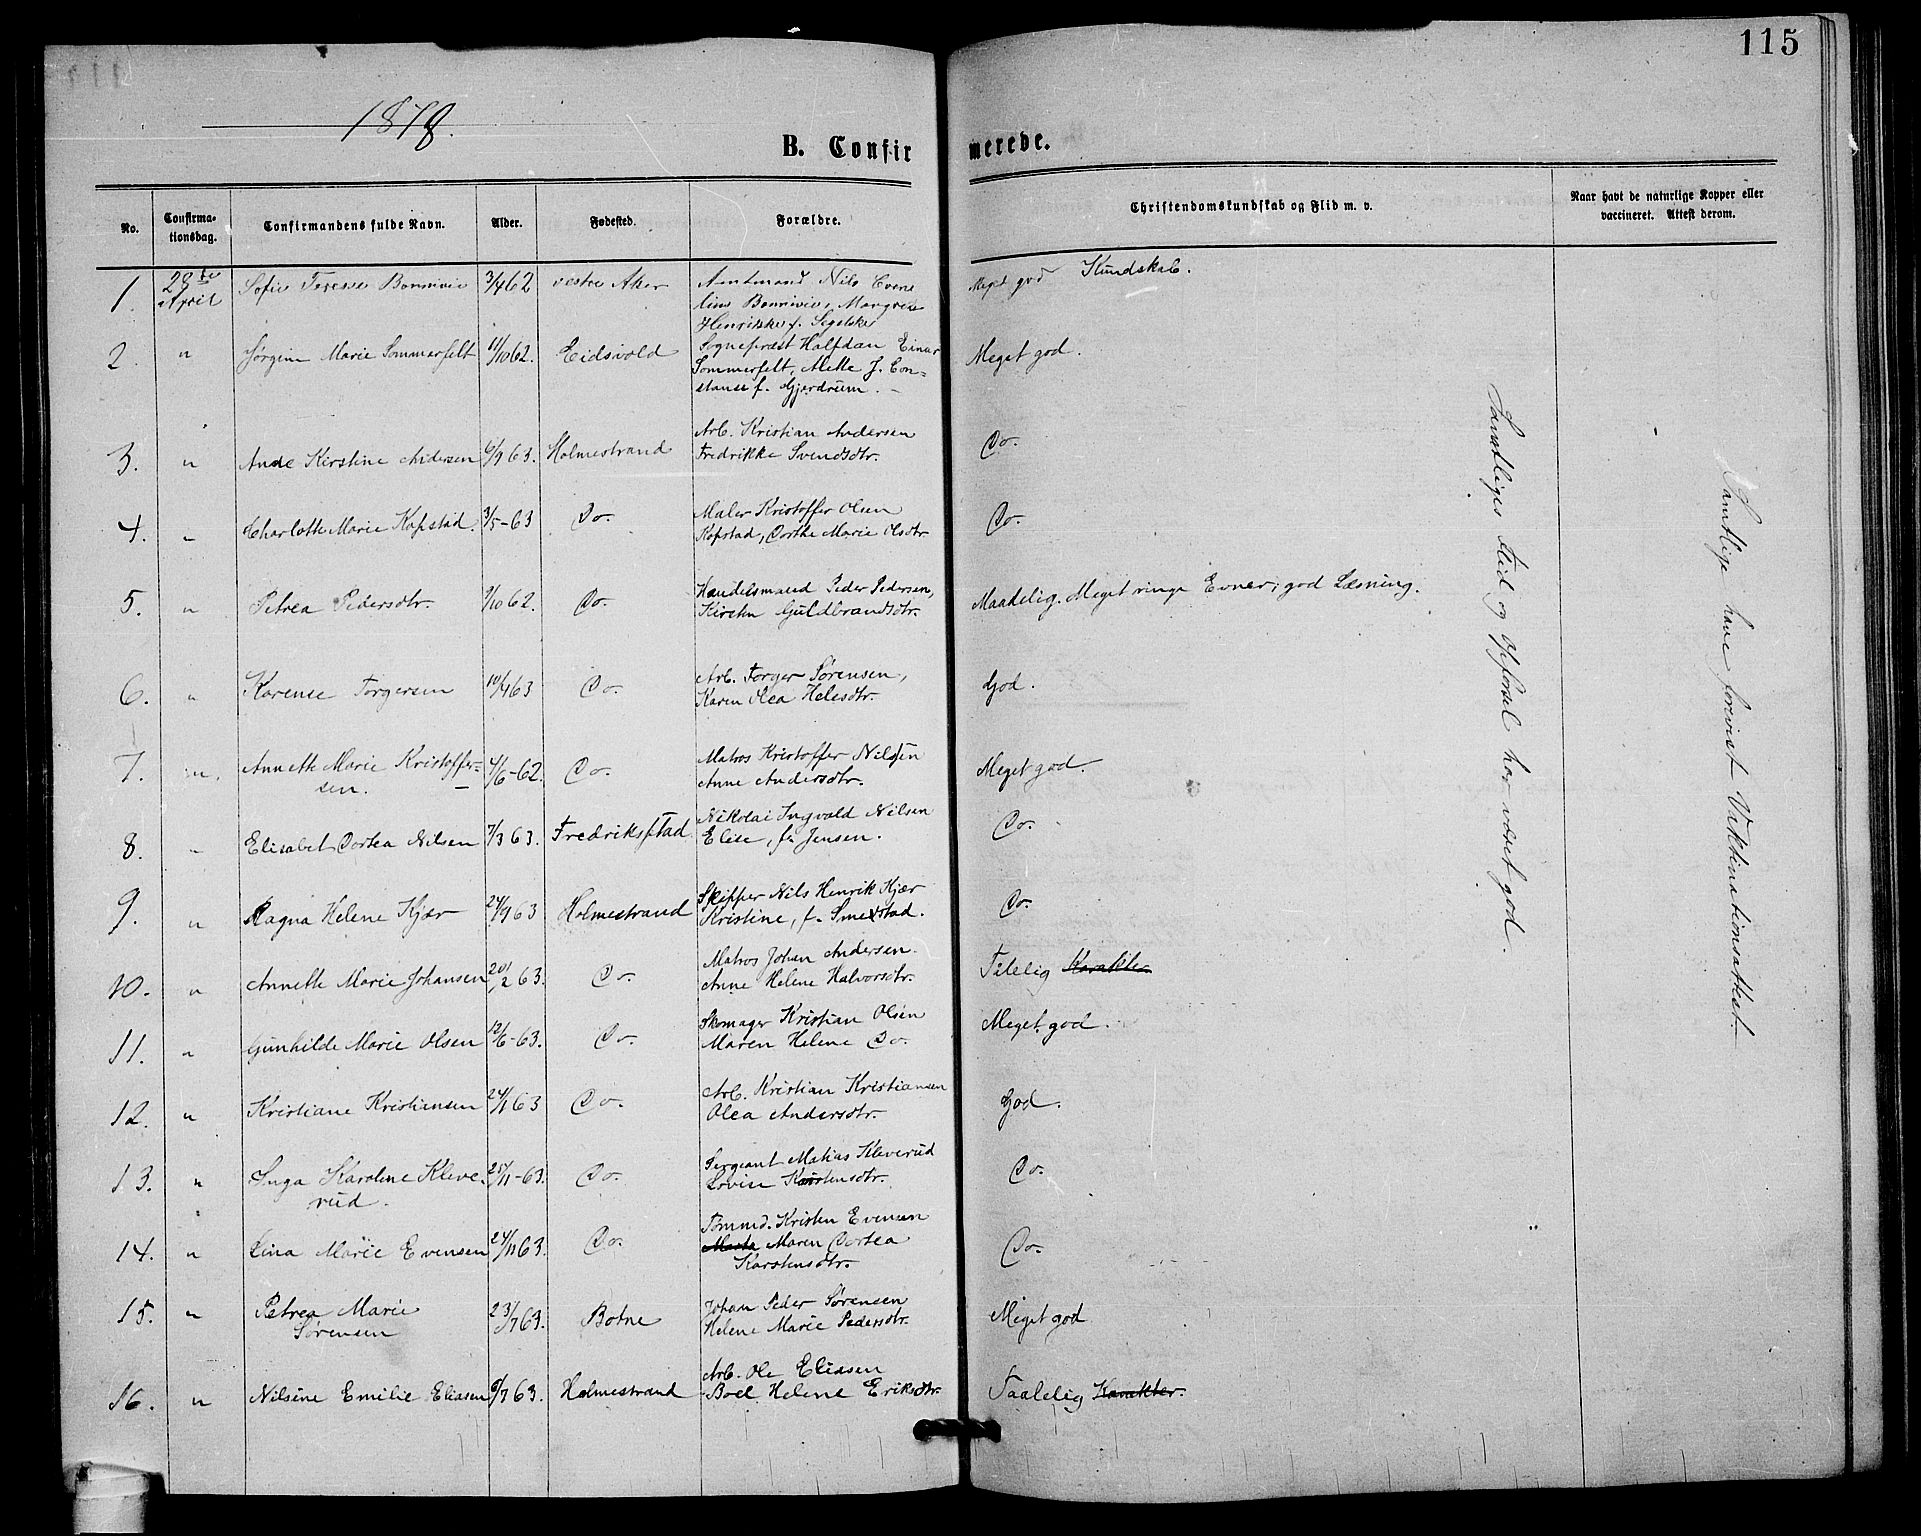 115
1878.
B. Confirmerede.
No.
Confirmationsdag.
Confirmandens fulde Navn.
Alder.
Fødested.
Forældre.
Christendomskundskab og Flid m. v.
Naar havt de naturlige Kopper eller
vaccineret. Attest derom.
1. 28de April Sofie Terese Bonnivie 3/4 62 vestre Aker
Amtmand Nils Eve
line Bonnivie, Margrete
Henrikke f. Segelcke
Meget god Kundskab.
2. " Jørgine Marie Sommerfelt 11/10 62. Eidsvold
Sogneprest Halfdan Einar
Sommerfelt, Mette J. Con=
stanse f. Gjerdrum. -
Meget god.
3. " Ande Kirstine Andersen 6/9 63. Holmestrand
Arb. Kristian Andersen
Fredrikke Svendsdtr.
Do.
4. " Charlotte Marie Kopstad. 3/5-63 Do.
Maler Kristoffer Olsen
Kopstad, Dorthe Marie Olsdtr.
Do.
5. " Petrea Pedersdtr. 9/10 62. Do.
Handelsmand Peder Pedersen,
Kirsten Guldbrandsdtr.
Maadelig. Meget ringe Evner; god Læsning.
6. " Karense Torgersen 10/4 63 Do.
Arb. Torger Sørensen,
Karen Olea Helesdtr.
God.
7. " Annette Marie Kristoffer-
sen. 4/6-62. Do.
Matros Kristoffer Nilsen
Anne Andersdtr.
Meget god.
8. " Elisabet Dortea Nilsen 7/3 63. Fredriksstad
Nikolai Ingvald Nilsen
Elise, f. Jensen.
Do.
9. " Ragna Helene Kjær 24/9 63 Holmestrand
Skipper Nils Henrik Kjær
Kristine, f. Smestad.
Do.
10. " Annette Marie Johansen 20/2 63. Do.
Matros Johan Andersen.
Anne Helene Halvorsdtr.
Tålelig Karakter
11. " Gunhilde Marie Olsen 12/6-63. Do.
Skomager Kristian Olsen
Maren Helene Do.
Meget god.
12. " Kristiane Kristiansen 24/1 63 Do.
Arb. Kristian Kristiansen
Olea Andersdtr.
God.
13. " Inga Karoline Kleve-
rud. 25/11-63. Do.
Sergeant Matias Kleverud
Lovise Karstensdtr.
Do.
14. " Lina Marie Evensen 24/11 63. Do.
Tømmd. Kristen Evensen
Marta Maren Dortea
Karstensdtr.
Do.
15. " Petrea Marie
Sørensen 23/7 63. Botne
Johan Peder Sørensen
Helene Marie Pedersdtr.
Meget god
16. " Nilsine Emilie Eliasen 6/7 63. Holmestrand
Arb. Ole Eliasen
Boel Helene Eriksdtr.
Taalelig Karakter.
Samtliges Flid og Opførsel har været god.
Samtlige have forevist Vaktinationsattest.